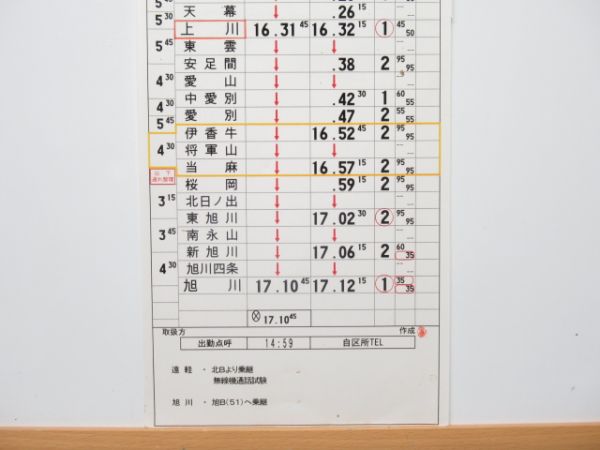 5 30 天幕 .26 15
上川 16.31 45 16.32 15 1 45 50
5 45 東雲
安足間 .38 2 95 95
4 30 愛山
中愛別 .42 30 1 60 55
4 30 愛別 .47 2 55 55
5 45 伊香牛 16.52 45 2 95 95
4 30 将軍山
当麻 16.57 15 2 95 95
桜岡 .59 15 2 95 95
3 15 北日ノ出
東旭川 17.02 30 2 95 95
3 45 南永山
新旭川 17.06 15 2 60 35
4 30 旭川四条
旭川 17.10 45 17.12 15 1 35 35
Ⓧ 17.10 45
取扱方 作成
出勤点呼 14:59 自区所TEL
遠軽 ・ 北Bより乗継
無線機通話試験
旭川 ・ 旭B(51)へ乗継